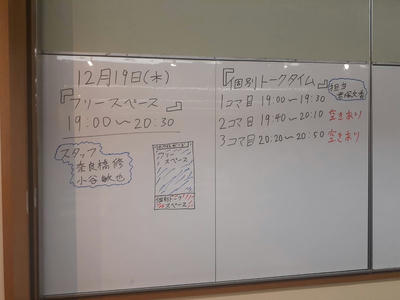 12月19日(木)
『フリースペース』
19:00〜20:30
スタッフ
奈良橋 修
小谷 敏也
フリー
スペース
個別トーク!!!
スペース!!
『個別トークタイム』
担当
1コマ目 19:00〜19:30
2コマ目 19:40〜20:10 空きあり
3コマ目 20:20〜20:50 空きあり